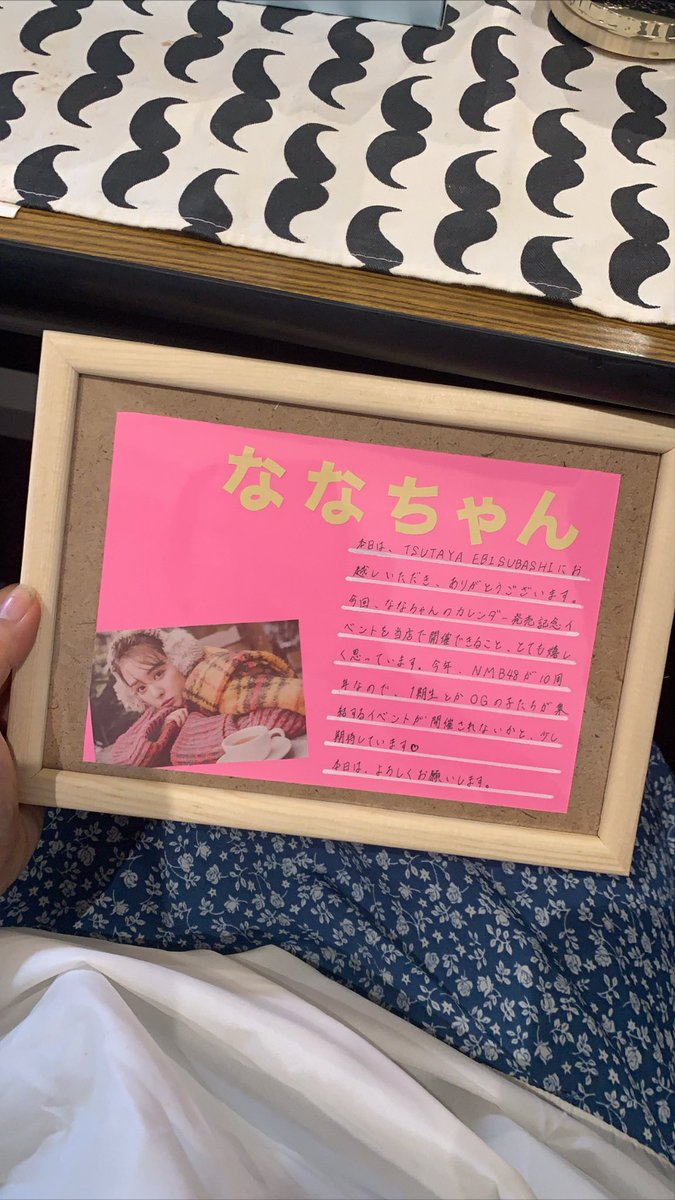 ななちゃん
本日は、TSUTAYA EBISUBASHIにお
越しいただき、ありがとうございます。
今回、ななちゃんのカレンダー発売記念イ
ベントを当店で開催できること、とても嬉し
く思っています。今年、NMB48が10周
年なので、1期生とかOGの子たちが集
結するイベントが開催されないかと、少し
期待しています♡
本日は、よろしくお願いします。